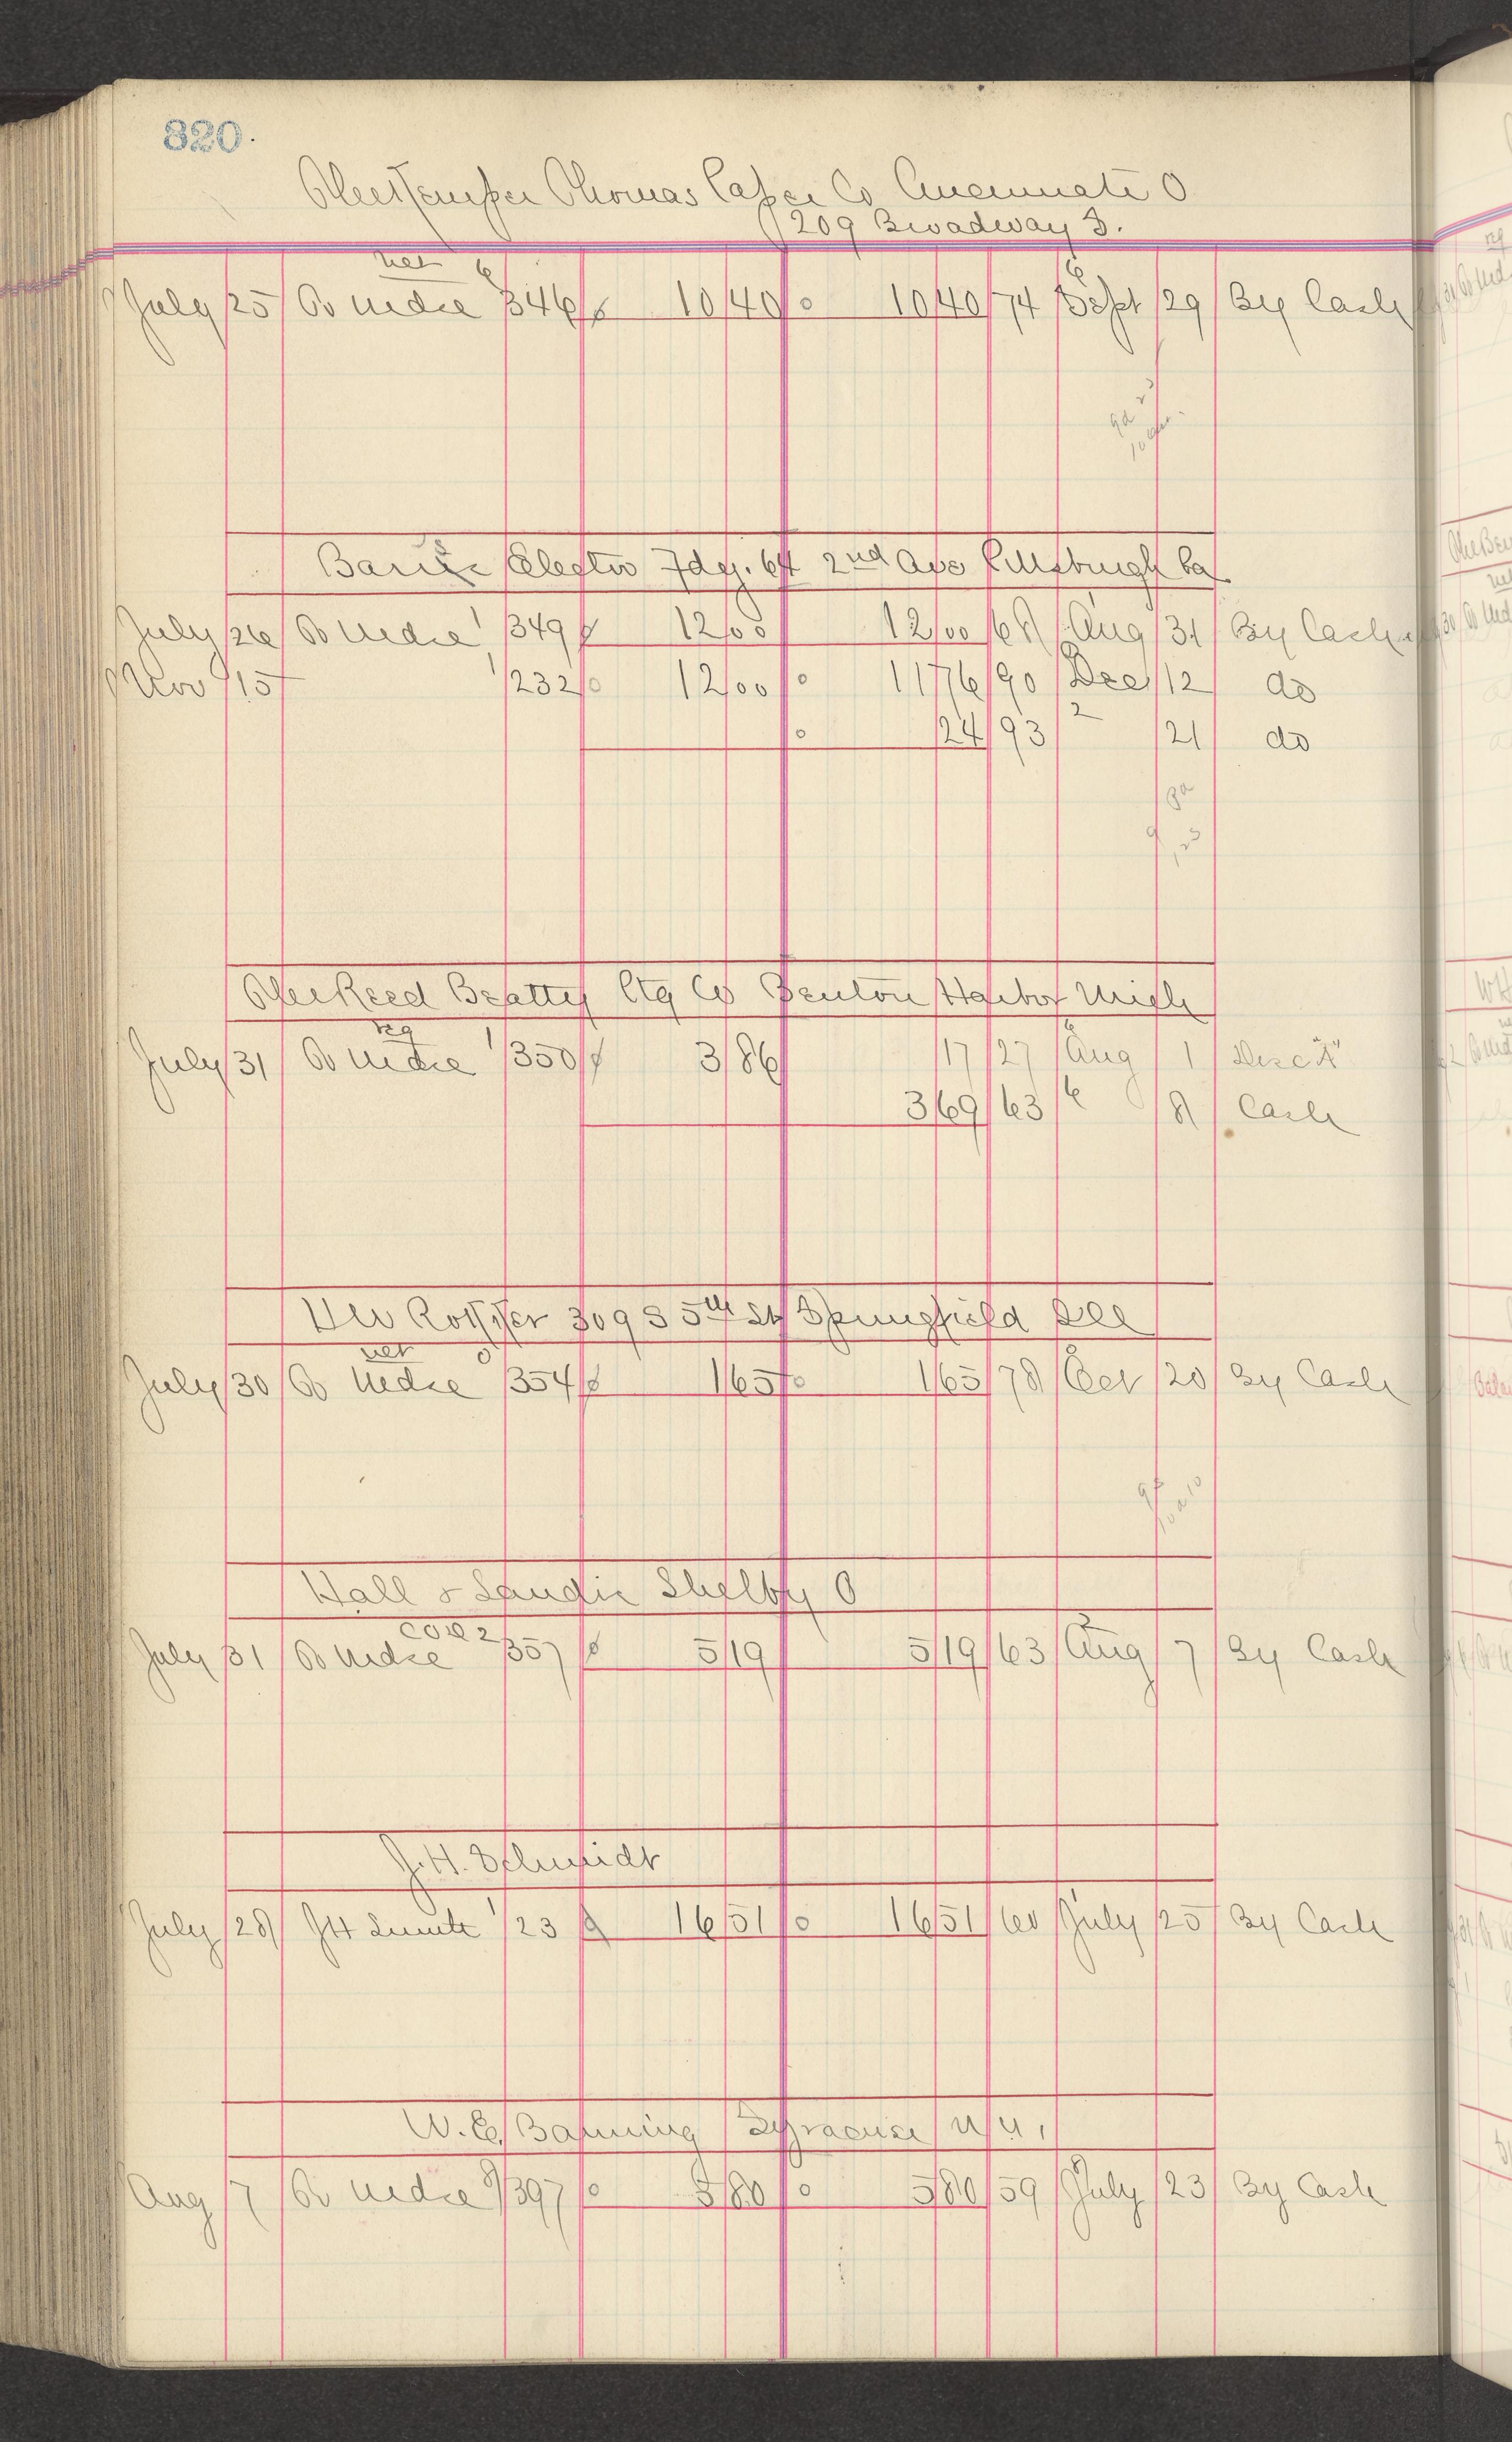 820.
Thomas Paper Co Cincinnati O
209 Broadway S.
net 6
July 25 To Mdse 346 10 40 10 40 74 Sept 29 By Cash
Electro Fdy. 64 2nd Ave Pittsburgh Pa
July 26 To Mdse 1 349 12 00 12 00 68 Aug 31 By Cash
Nov 15 1 232 12 00 11 76 90 Dec 12 do
24 93 2 21 do
The Reed Beatty Ctg Co Benton Harbor Mich
reg
July 31 To Mdse 1 350 3 86 17 27 Aug 1 Disc't
3 69 63 6 8 Cash
309 S 5th St Springfield Ill
net
July 30 To Mdse 354 1 65 1 65 78 Oct 20 By Cash
Hall & Shelby O
2
July 31 To Mdse 357 5 19 5 19 63 Aug 7 By Cash
J. H. Schmidt
July 28 J H 1 23 16 51 16 51 60 July 25 By Cash
W. E. Banning Syracuse N Y,
Aug 7 To Mdse 397 5 80 5 80 59 July 23 By Cash